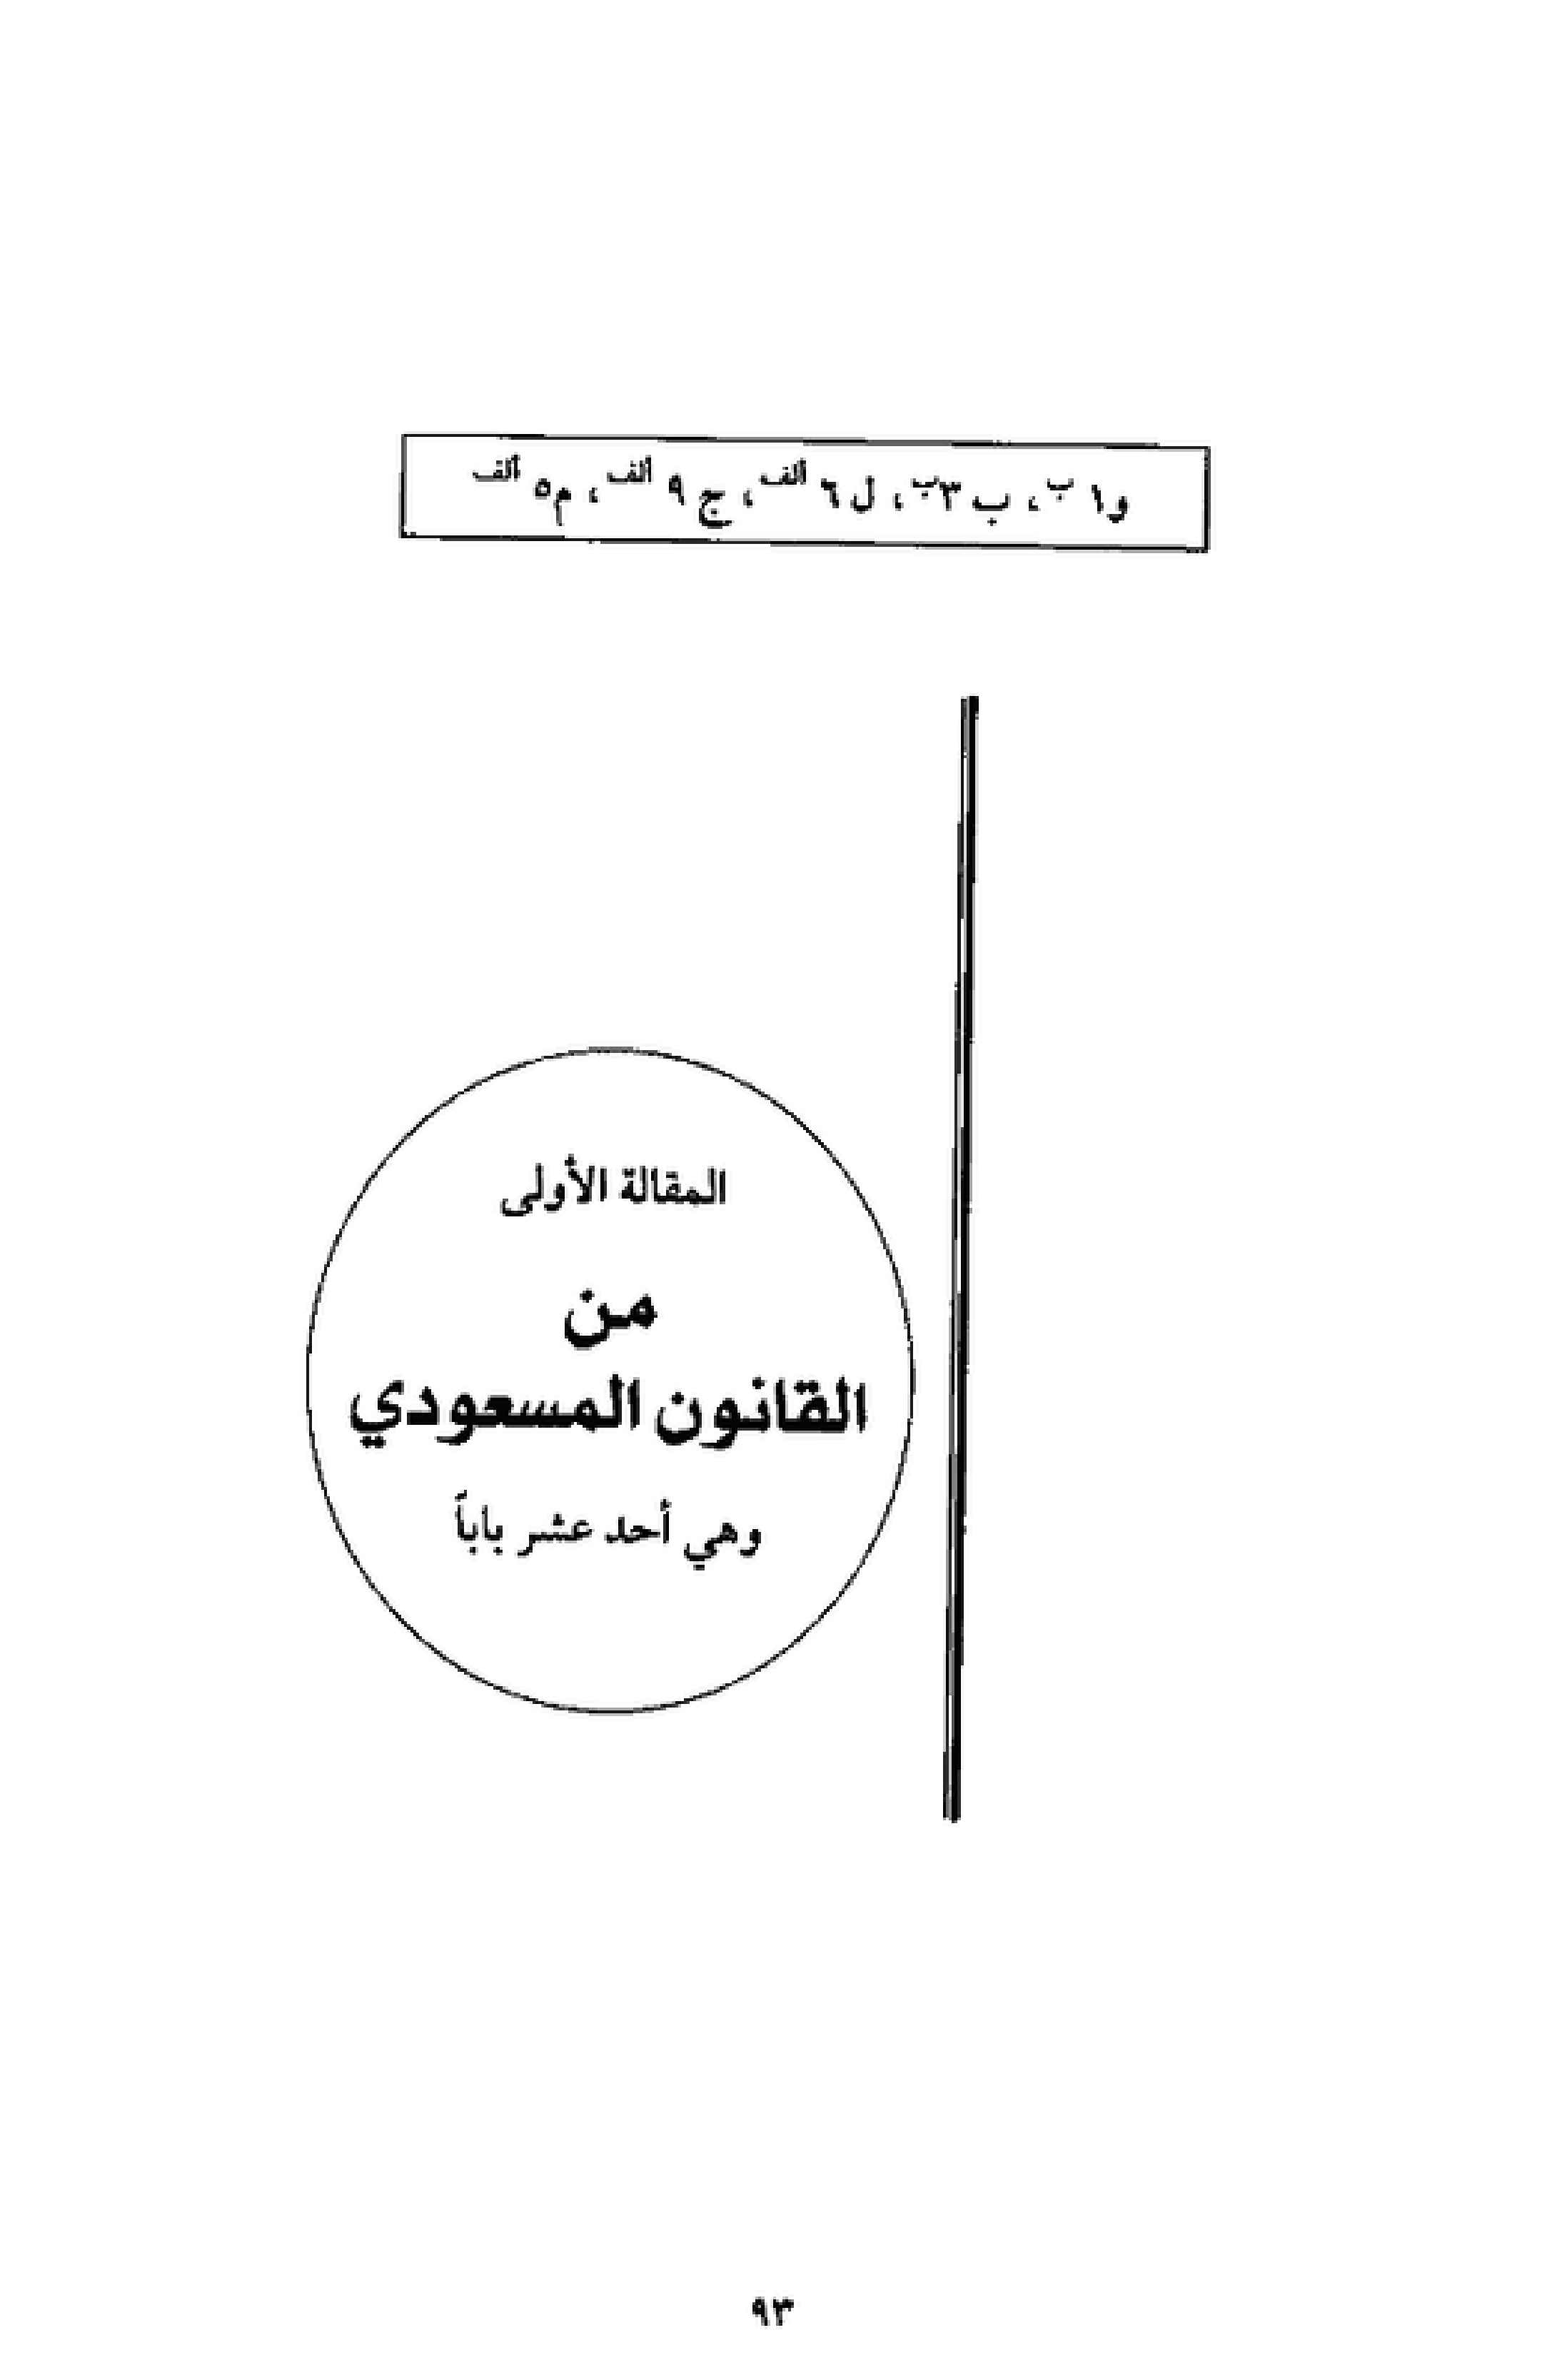 و١ ب، ب ٣ب، ل ٦ ألف، ج ٩ ألف، م٥ ألف
المقالة الأولى
من
القانون المسعودي
وهي أحد عشر باباً
٩٣